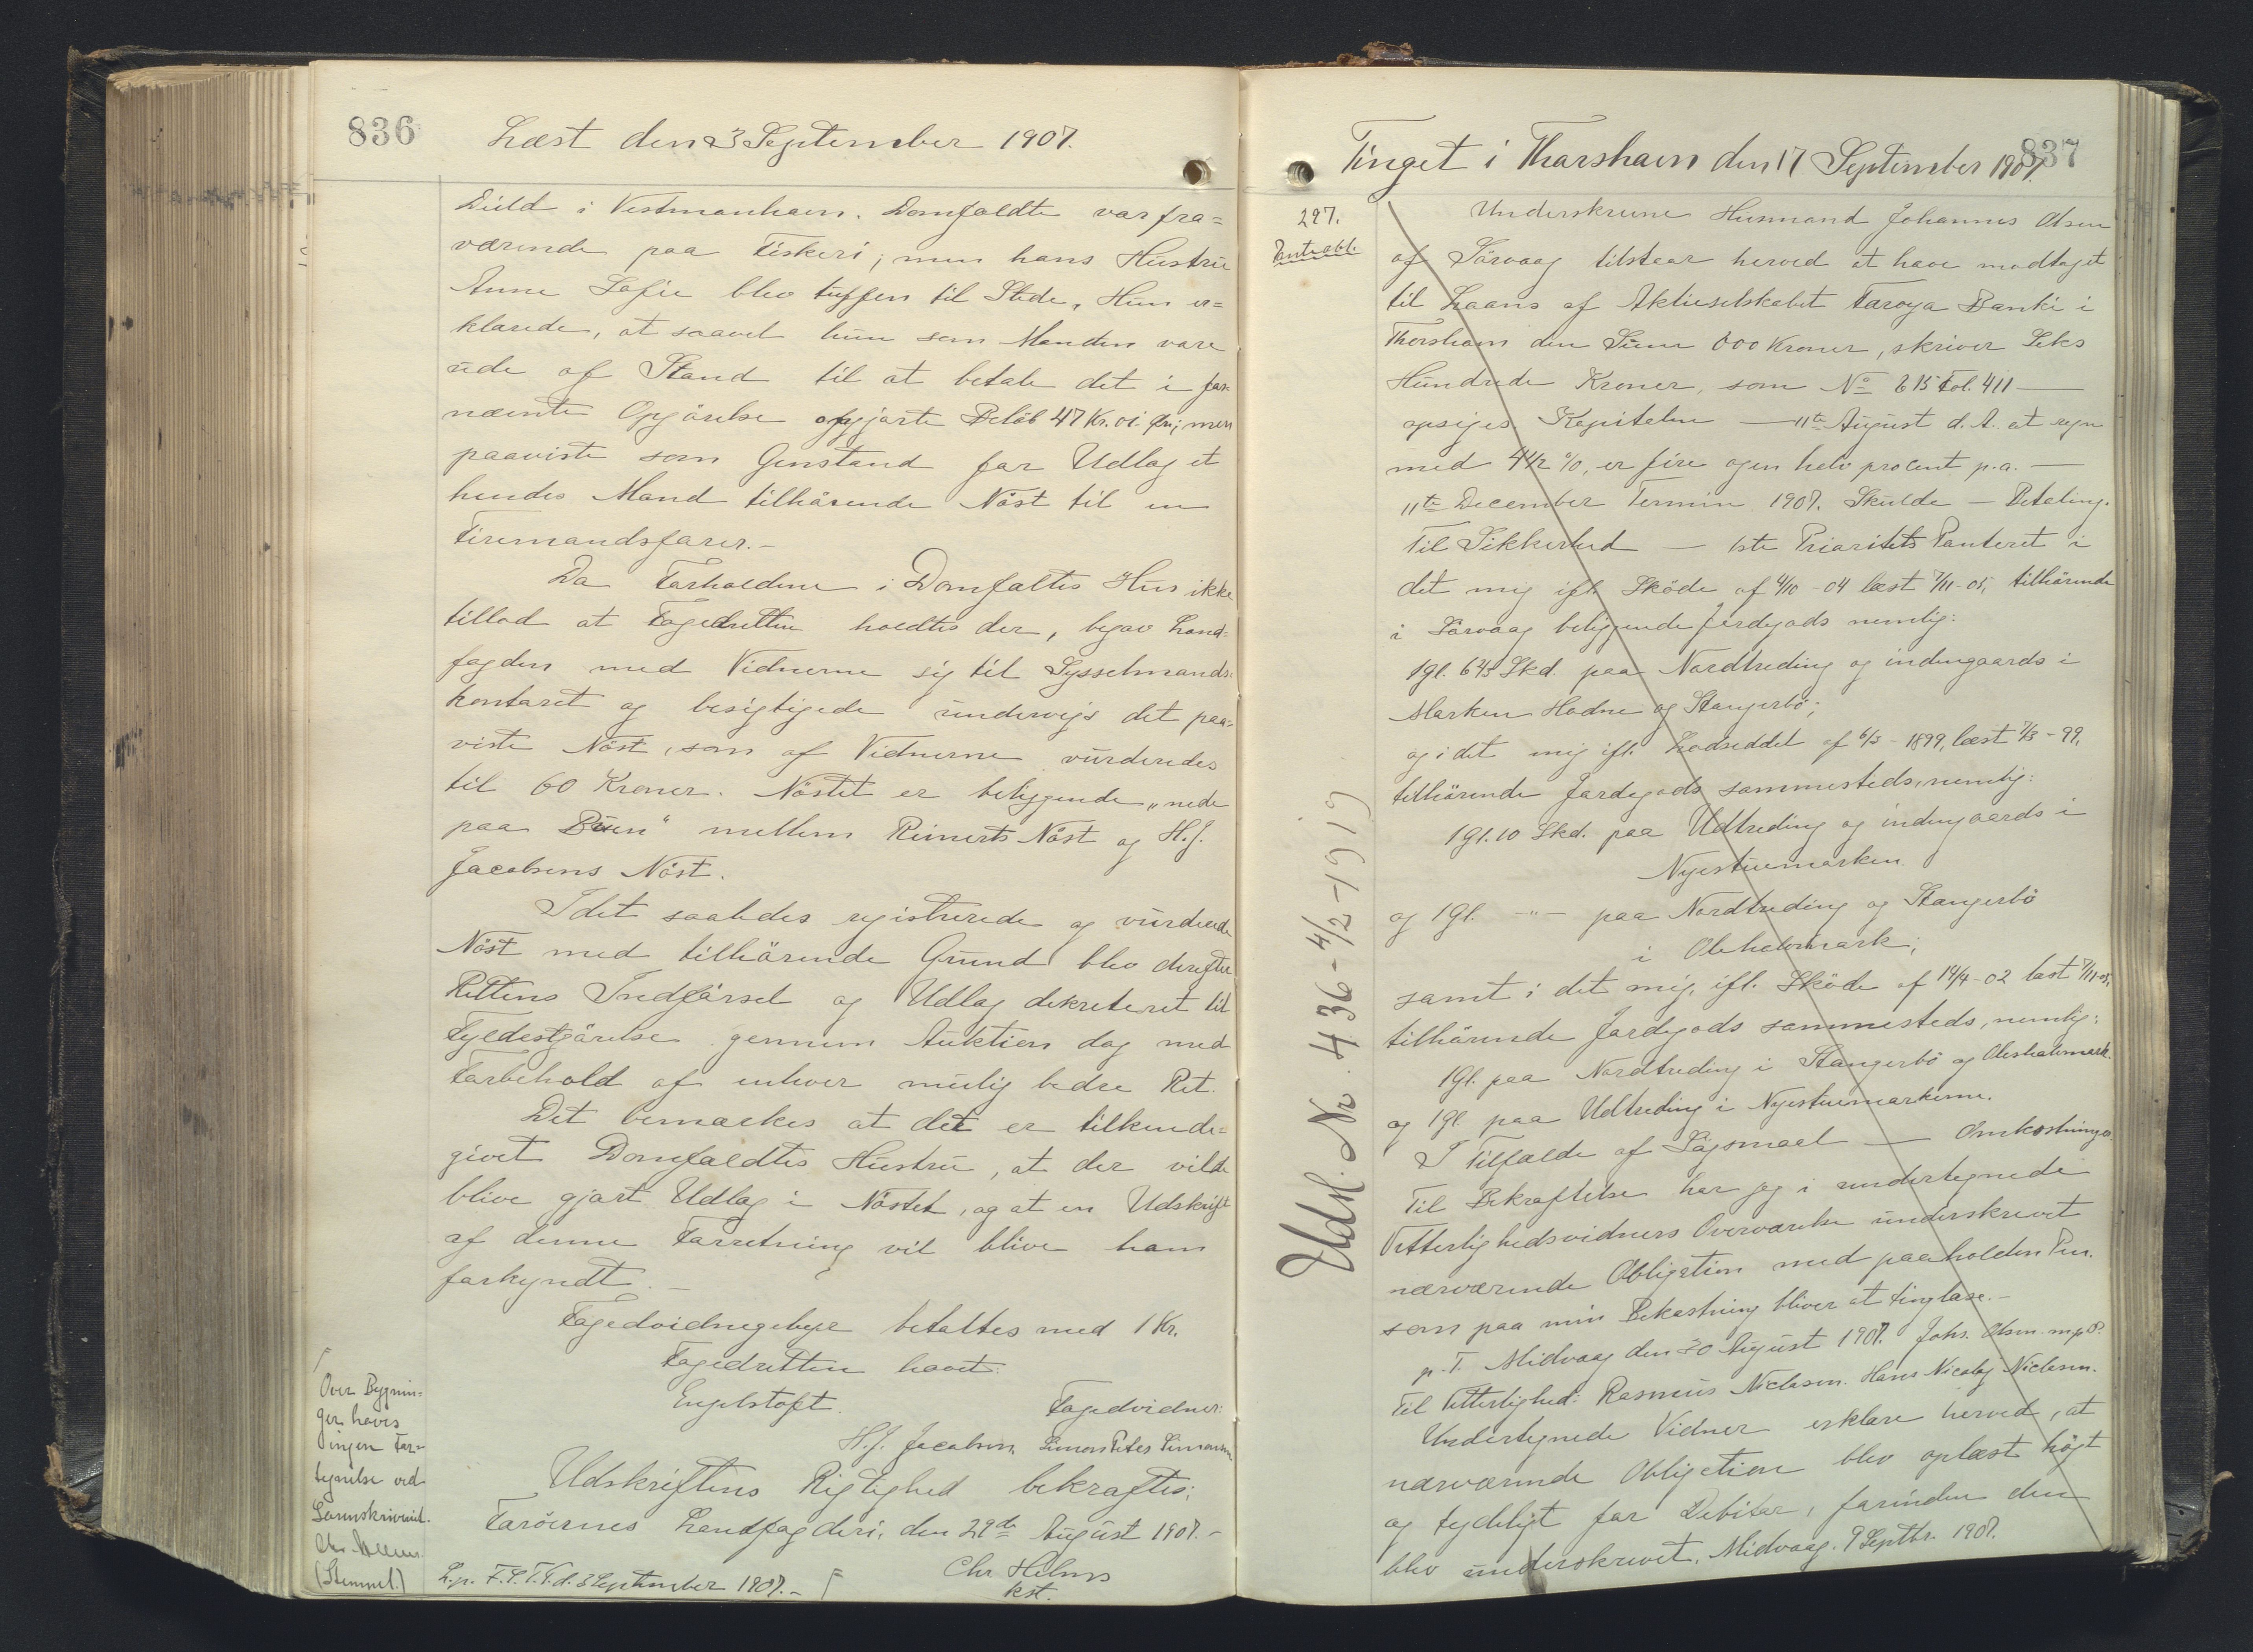 836
Læst den 3 September 1907.
Dúld i Vestmanhavn. Domfældte var fra=
værende paa Fiskeri; men hans Hustru
Anne Sofie blev truffen til Stede. Hun er=
klærede, at saavel hun som Manden vare
ude af Stand til at betale det i for
nævnte Opgörelse opgjorte Belöb 47 Kr. 01 Ør; men
paaviste som Genstand for Udlæg et
hendes Mand tilhörende Nöst til en
Firemandsfarer.-
Da Forholdene i Domfældtes Hus ikke
tillod at Fogedretten holdtes der, begav Land=
fogden med Vidnerne sig til Sysselmands=
kontoret og besigtigede undervejs det paa=
viste Nöst, som af Vidnerne vurderedes
til 60 Kroner. Nöstet er beliggende "nede
paa Büen" mellem Reinerts Nöst og H.J.
Jacobsens Nöst.
I det saaledes registrerede og vurderede
Nöst med tilhörende Grund blev derefter
Rettens Indförsel og Udlæg dekreteret til
Fyldestgörelse gennem Auktion dog med
Forbehold af enhver mulig bedre Ret.
Det bemærkes at det er tilkende=
givet Domfældtes Hustru, at der vilde
blive gjort Udlæg i Nöstet, og at en Udskrift
af denne Forretning vil blive ham
forkyndt.-
Fogedvidnegebyr betaltes med 1 Kr.
Fogedretten hævet.
Engelstoft. Fogedvidner:
H.J. Jacobsen Simon Peter Simonsen
Udskriftens Rigtighed bekræftes;
Færöernes Landfogderi, den 29de August 1907.-
Chr Helms
kst.
L.p. F.S.T.T. d. 3 September 1907.-
Over Bygnin=
ger haves
ingen For=
tegnelse ved
Sorenskriveriet.
(Stempel.)
837
Tinget i Thorshavn den 17 September 1907.
297.
Panteobl.
Underskrevne Husmand Johannes Olsen
af Sörvaag tilstaar herved at have modtaget
til Laans af Aktieselskabet Føroya Banki i
Thorshavn den Sum 600 Kroner, skriver Seks
Hundrede Kroner, som No 615 Fol. 411 —
opsiges. Kapitalen — 11te August d. A. at regne
med 4½ %, er fire og en halv procent p.a. —
11te December Termin 1907. Skulde — Betaling.
Til Sikkerhed — 1ste Prioritets Panteret i
det mig ifl. Sköde af 4/10-04 læst 7/11-05, tilhörende
i Sörvaag beliggende Jordegods nemlig:
1 Gl. 6 4/5 Skd. paa Nordtreding og indengaards i
Marken Hodne og Stangerbö;
og i det mig ifl. Lodseddel af 6/3-1899, læst 7/3-99,
tilhörende Jordegods sammesteds, nemlig:
1 Gl. 10 Skd. paa Udtreding og indengaards i
Nyestuemarken
og 1 Gl. -"- paa Nordtreding og Stangerbö
i Olehalsmark;
samt i det mig, ifl. Sköde af 14/4-02 læst 7/11-05,
tilhörende Jordegods sammesteds, nemlig:
1 Gl. paa Nordtreding i Stangerbö og Oleshalsmark.
og 1 Gl. paa Udtreding i Nyestuemarkerne.
I Tilfælde af Sögsmaal — Omkostninger.
Til Bekræftelse har jeg i undertegnede
Vitterlighedsvidners Overværelse underskrevet
nærværende Obligation med paaholden Pen.
som paa min Bekostning bliver at tinglæse.-
p.T. Midvaag den 30 August 1907. Johs. Olsen m.p.P.
Til Vitterlighed: Rasmus Niclasen. Hans Nicolaj Niclasen.
Undertegnede Vidner erklære herved, at
nærværende Obligation blev oplæst højt
og tydeligt for Debitor, forinden den
blev underskrevet. Midvaag. 9 Septbr. 1907.
Udsl. Nr. 436 - 4/2-1919